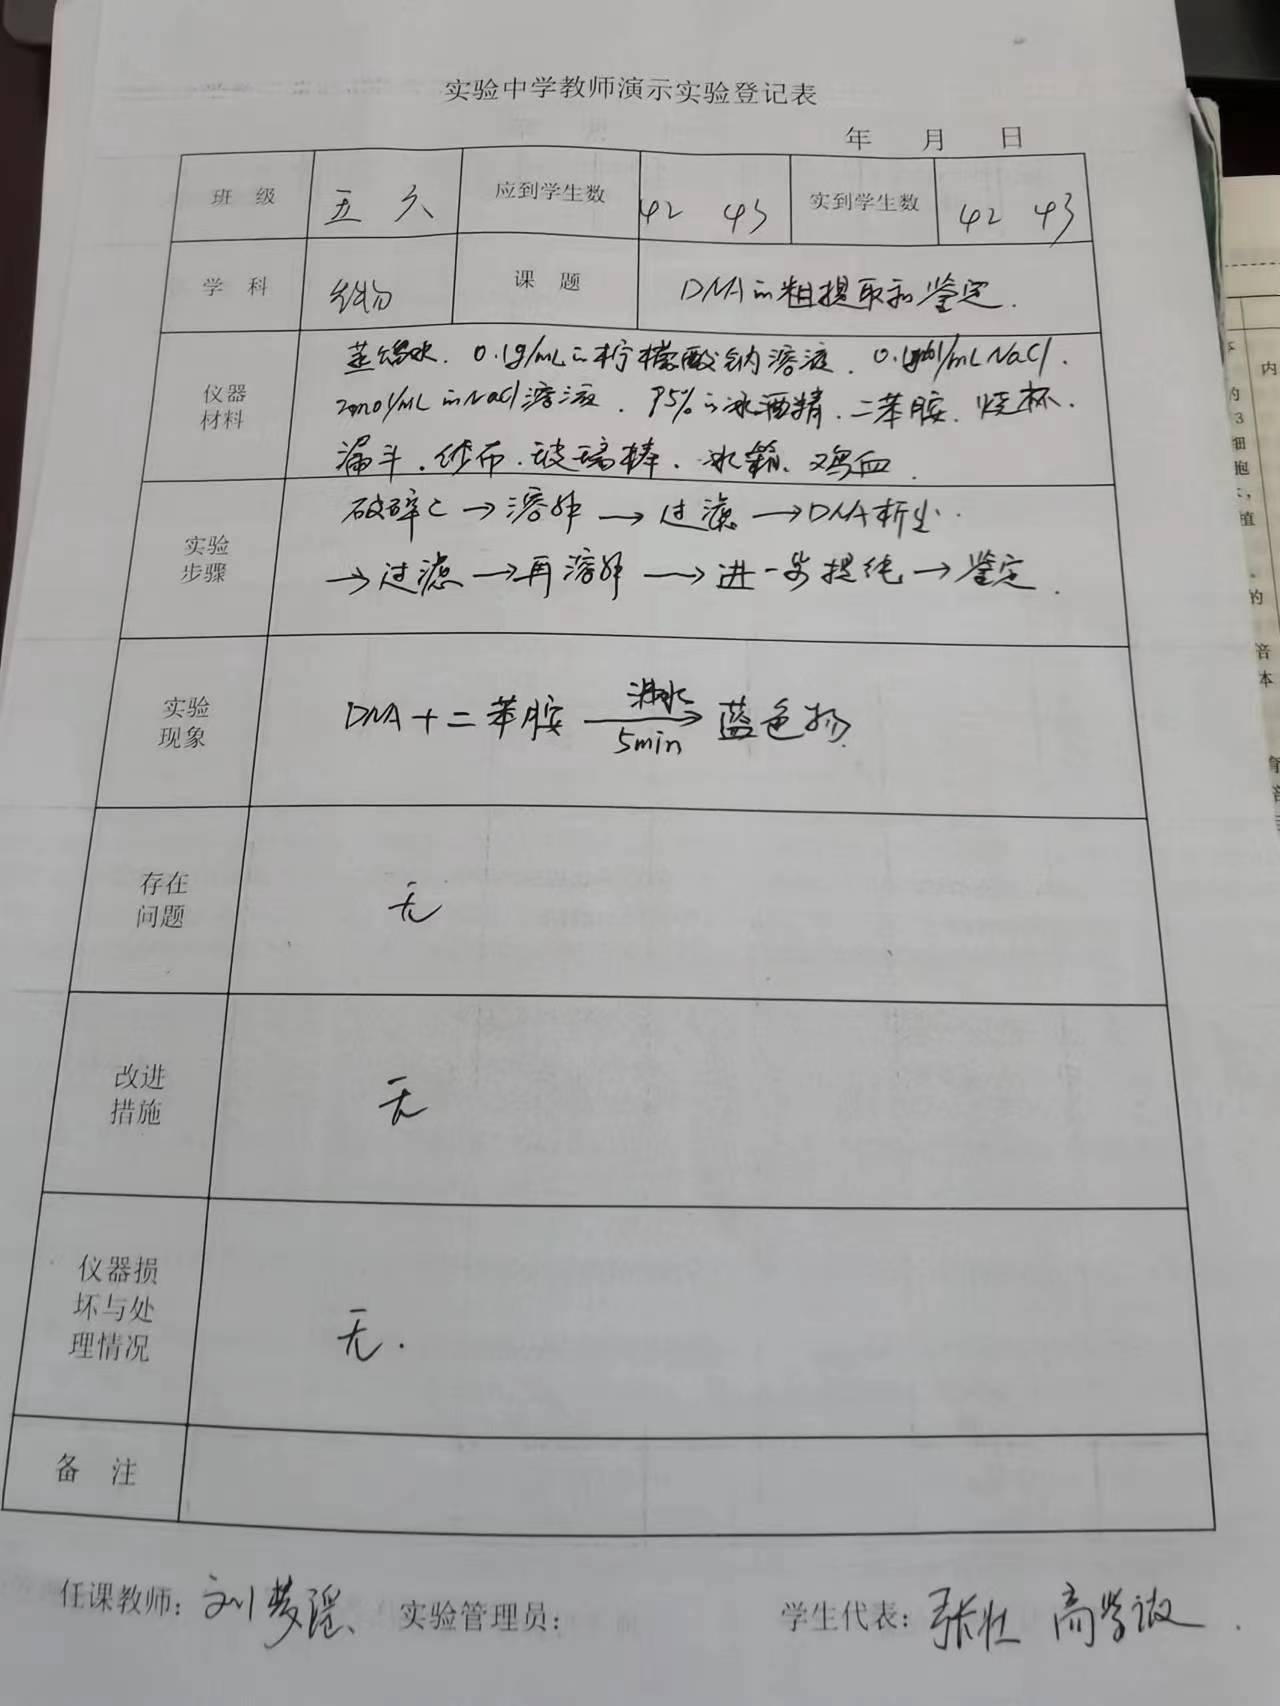 实验中学教师演示实验登记表
年 月 日
班 级 五 六 应到学生数 42 43 实到学生数 42 43
学 科 生物 课 题 DNA的粗提取和鉴定.
仪器材料
蒸馏水. 0.1g/mL的柠檬酸钠溶液. /mL NaCl.
2mol/mL的NaCl溶液. 95%的冰酒精. 二苯胺. 烧杯.
漏斗. 纱布. 玻璃棒. 冰箱. 鸡血.
实验步骤
破碎C→溶解→过滤→DNA析出
→过滤→再溶解→进一步提纯→鉴定.
实验现象
DNA+二苯胺 沸水 5min → 蓝色物.
存在问题
无
改进措施
无
仪器损坏与处理情况
无.
备 注
任课教师: 刘梦瑶 实验管理员: 学生代表: 张壮 高